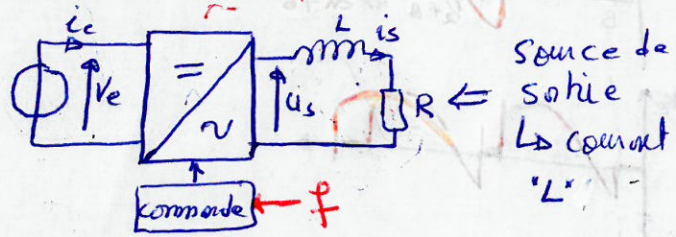 ie
L
is
Ve
=
~
us
R ⇐
source de
sortie
↳ courant
"L"
commande
f